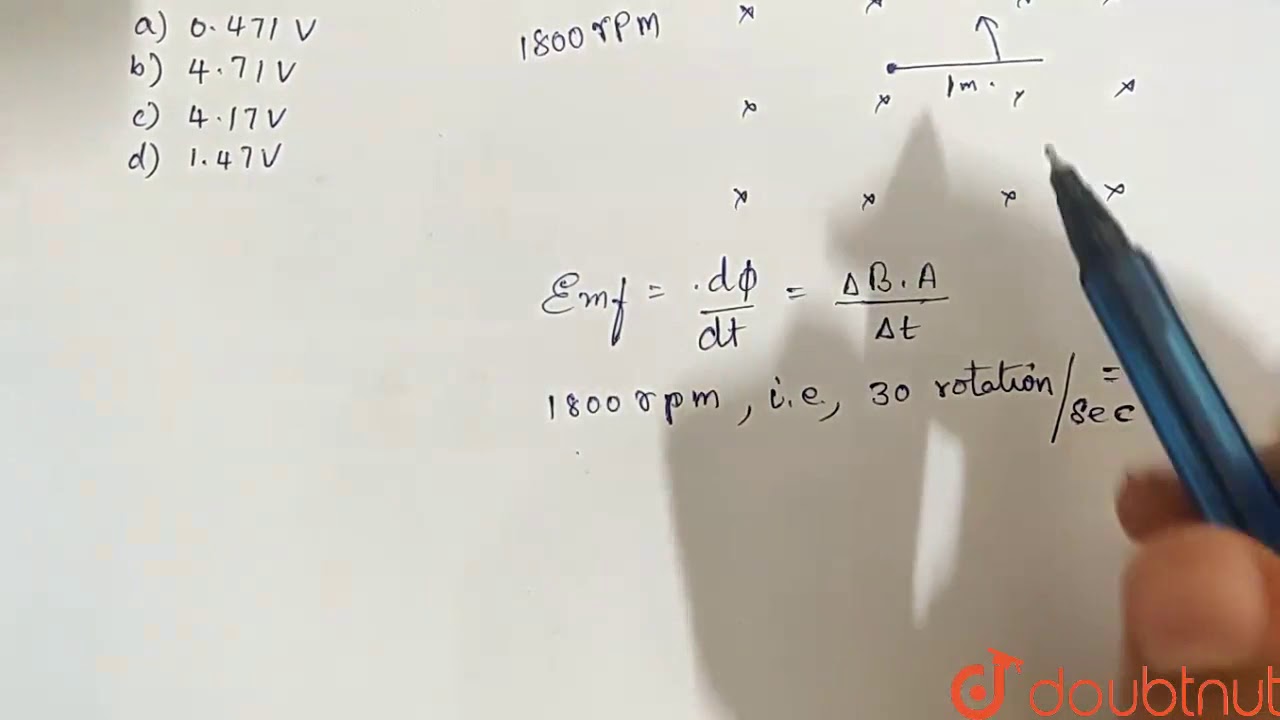 a) 0.471 V
b) 4.71V
c) 4.17V
d) 1.47V
1800 rpm
1m.
Emf = .dϕ/dt = ΔB.A/Δt
1800 rpm, i.e, 30 rotation/sec =
doubtnut